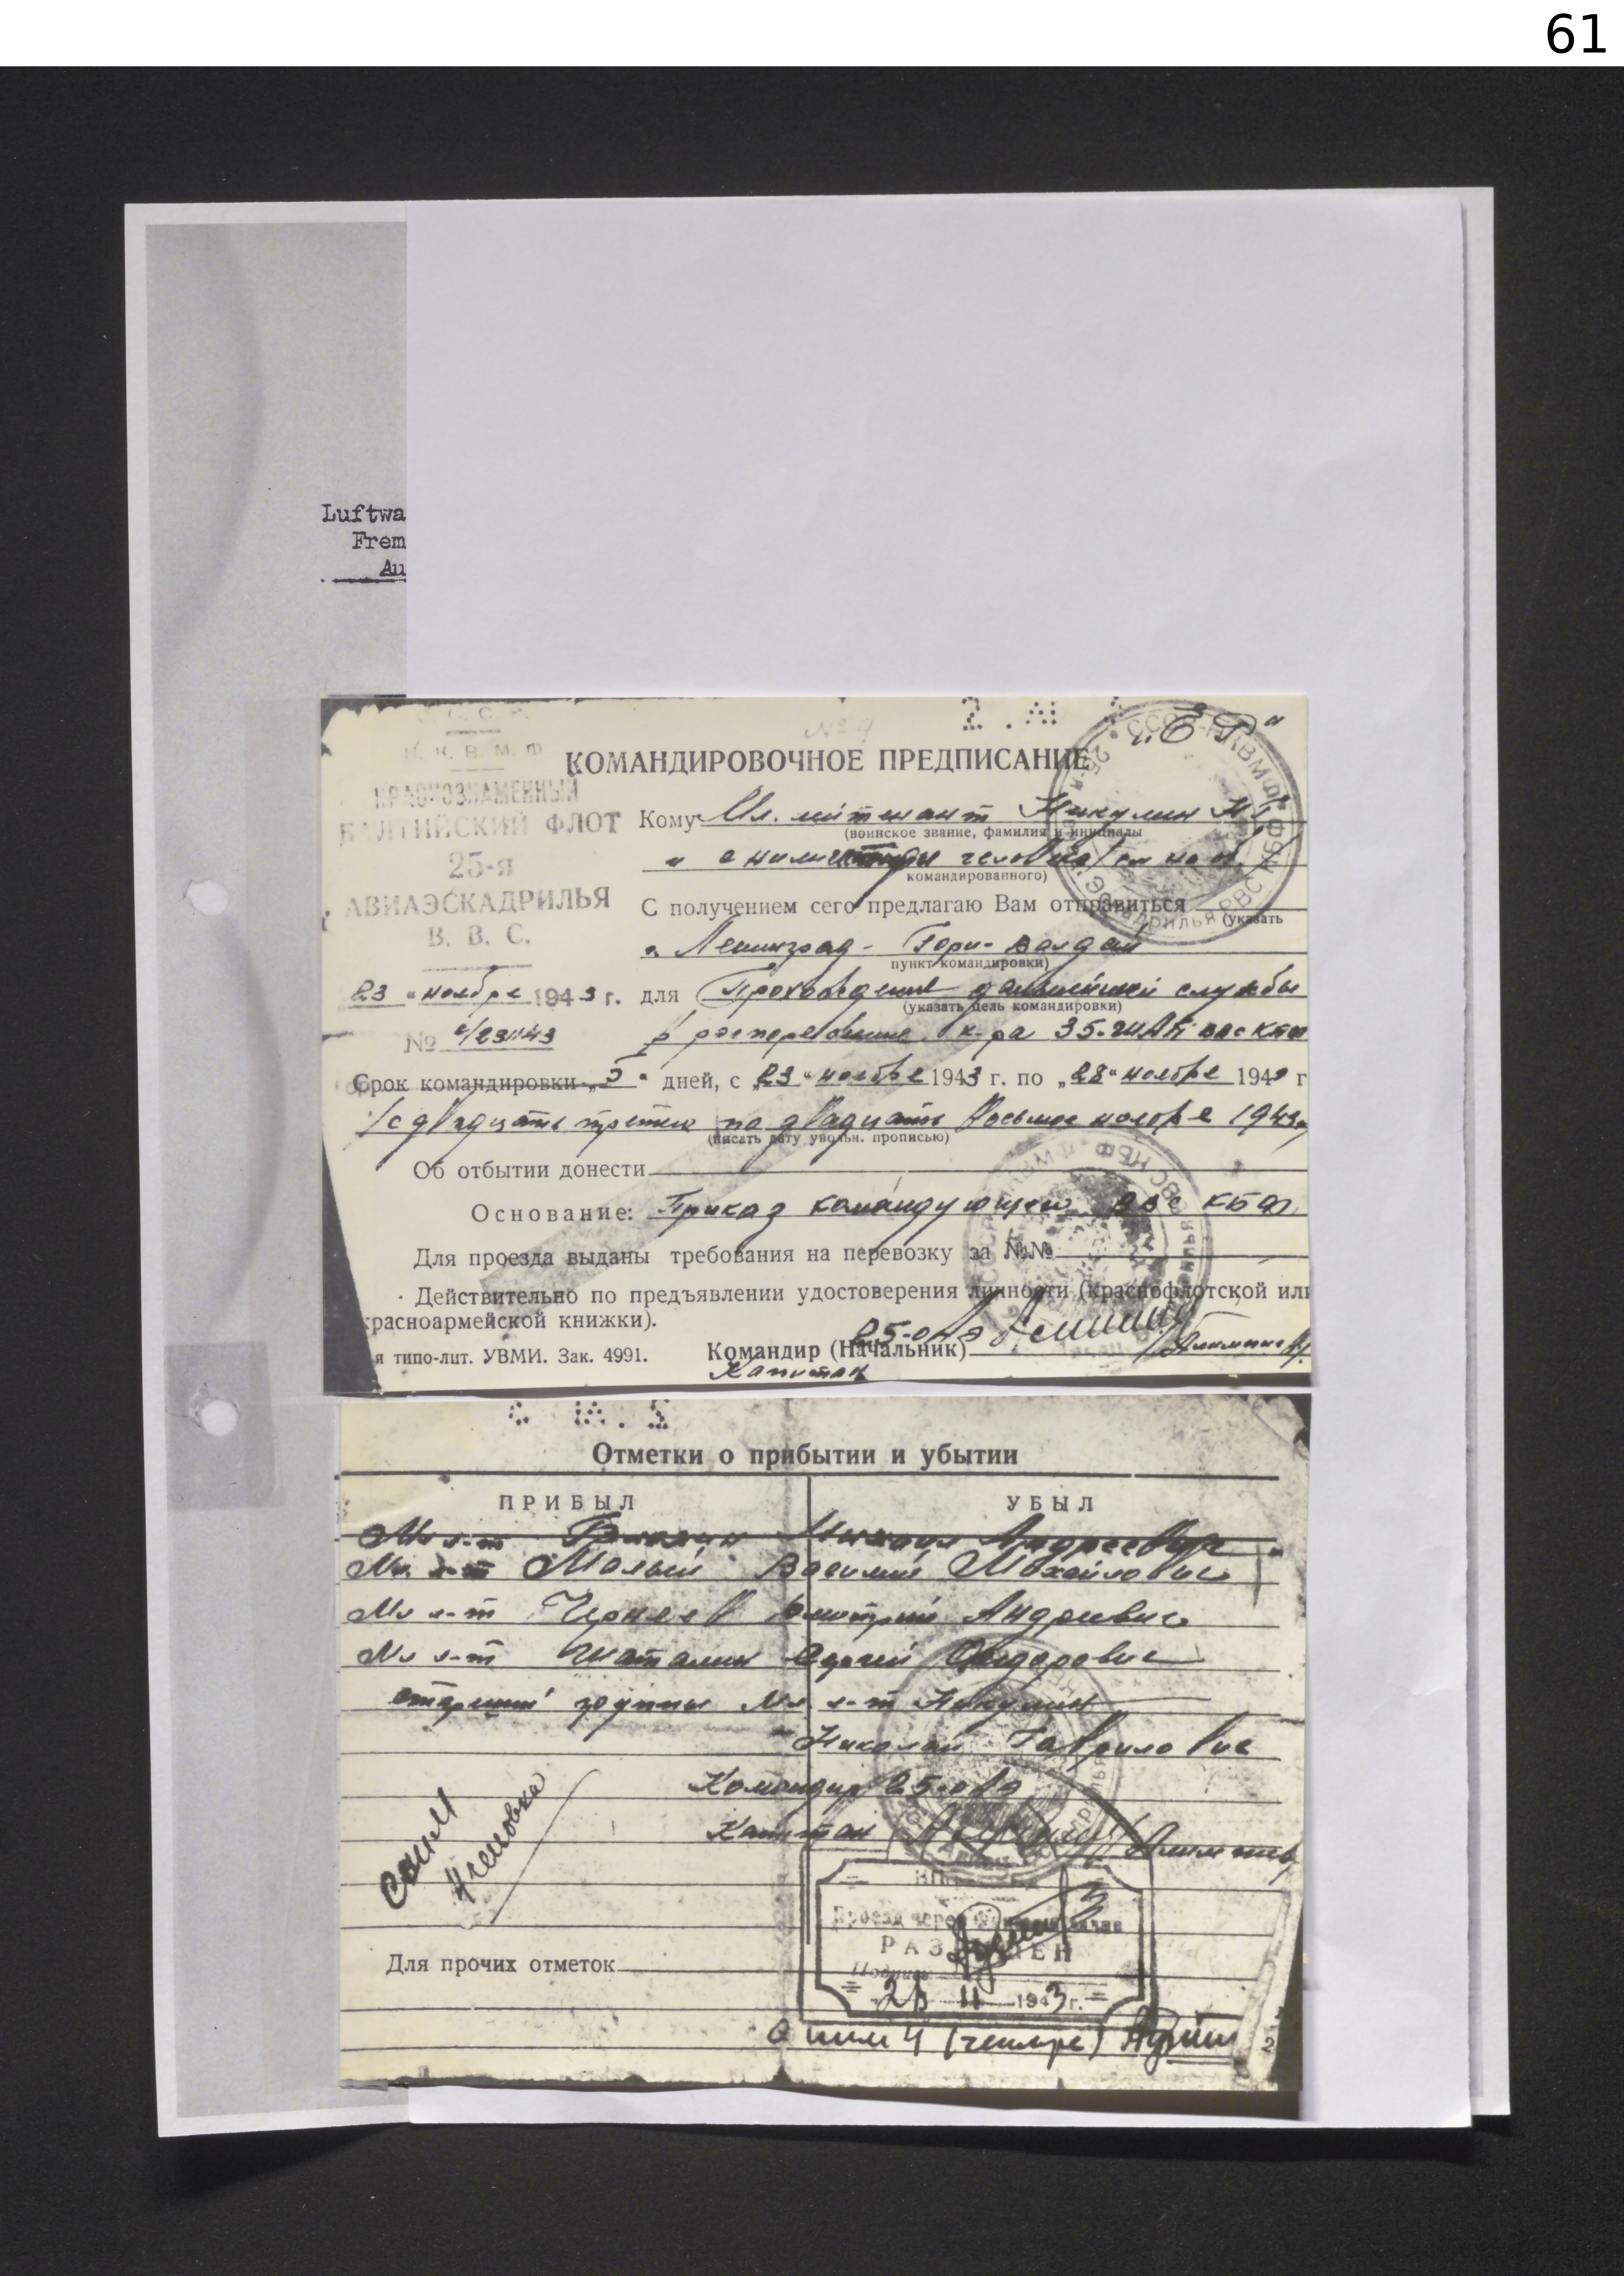 61
Luftwa
Frem
Au
С. С. С. Р.
Н. К. В. М. Ф.
КРАСНОЗНАМЕННЫЙ
БАЛТИЙСКИЙ ФЛОТ
25-я
АВИАЭСКАДРИЛЬЯ
В. В. С.
23 " ноября 1943 г.
№
№ 9
КОМАНДИРОВОЧНОЕ ПРЕДПИСАНИЕ
Кому Мл. лейтенант Никулин Н.Г.
(воинское звание, фамилия и инициалы
и с ним человека
командированного)
С получением сего предлагаю Вам отправиться
(указать
г. Ленинград - Гора-Валдай
пункт командировки)
для Прохождения дальнейшей службы
(указать цель командировки)
в распоряжение к-ра 35-ШАП ВВС КБФ
Срок командировки „5" дней, с „23" ноября 1943 г. по „28" ноября 1943 г
/с двадцать третье по двадцать восьмое ноября 1943г
(писать дату увольн. прописью)
Об отбытии донести
Основание: Приказ командующего ВВС КБФ
Для проезда выданы требования на перевозку за №№
Действительно по предъявлении удостоверения личности (краснофлотской или
красноармейской книжки).
я типо-лит. УВМИ. Зак. 4991.
Командир (Начальник)
Капитан
Отметки о прибытии и убытии
ПРИБЫЛ
УБЫЛ
Мл л-т Михаил Андреевич
Мл л-т Малый Василий Михайлович
Мл л-т Чернеев Дмитрий Андреевич
Мл л-т Шаталин Сергей Федорович
старший группы Мл л-т Никулин
Николай Гаврилович
Командир 25-
Капитан
с ним
4 человека
Для прочих отметок
Проезд через
РАЗРЕШЕН
Подпись
11 1943 г.
с ним 4 (четыре)